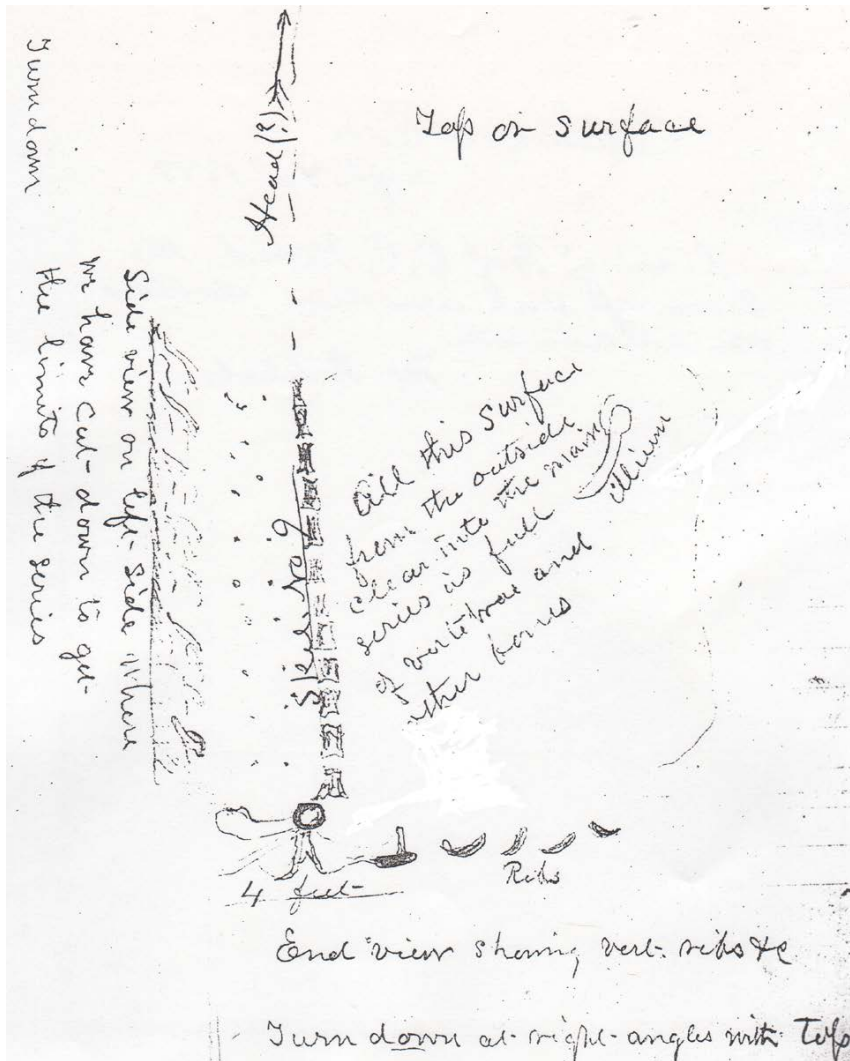 Top or surface
Head (?)
Turn down
Side view on left-side where
we have cut-down to get-
the limits of the series
Skel. No 9
All this surface
from the outside
clear into the main
series is full
of vertebrae and
other bones
illium
4 feet
Ribs
End view showing vert. ribs &c
Turn down at-right-angles with Top